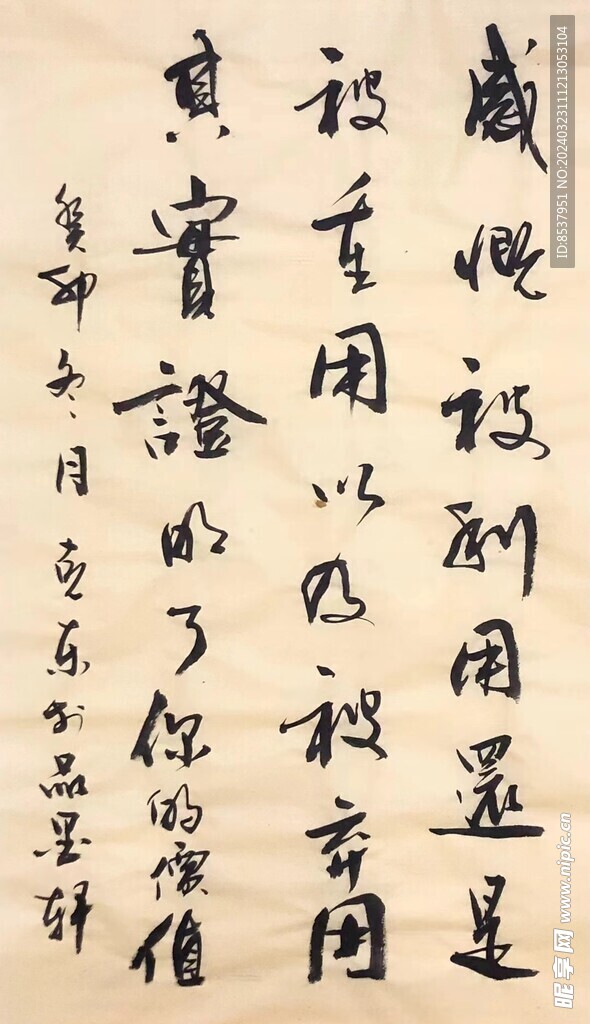 感慨被利用還是
被重用以及被弃用
真實證明了你的價值
癸卯冬月克东于品墨轩
ID:8537951 NO:20240323111213053104
昵享网 www.nipic.cn